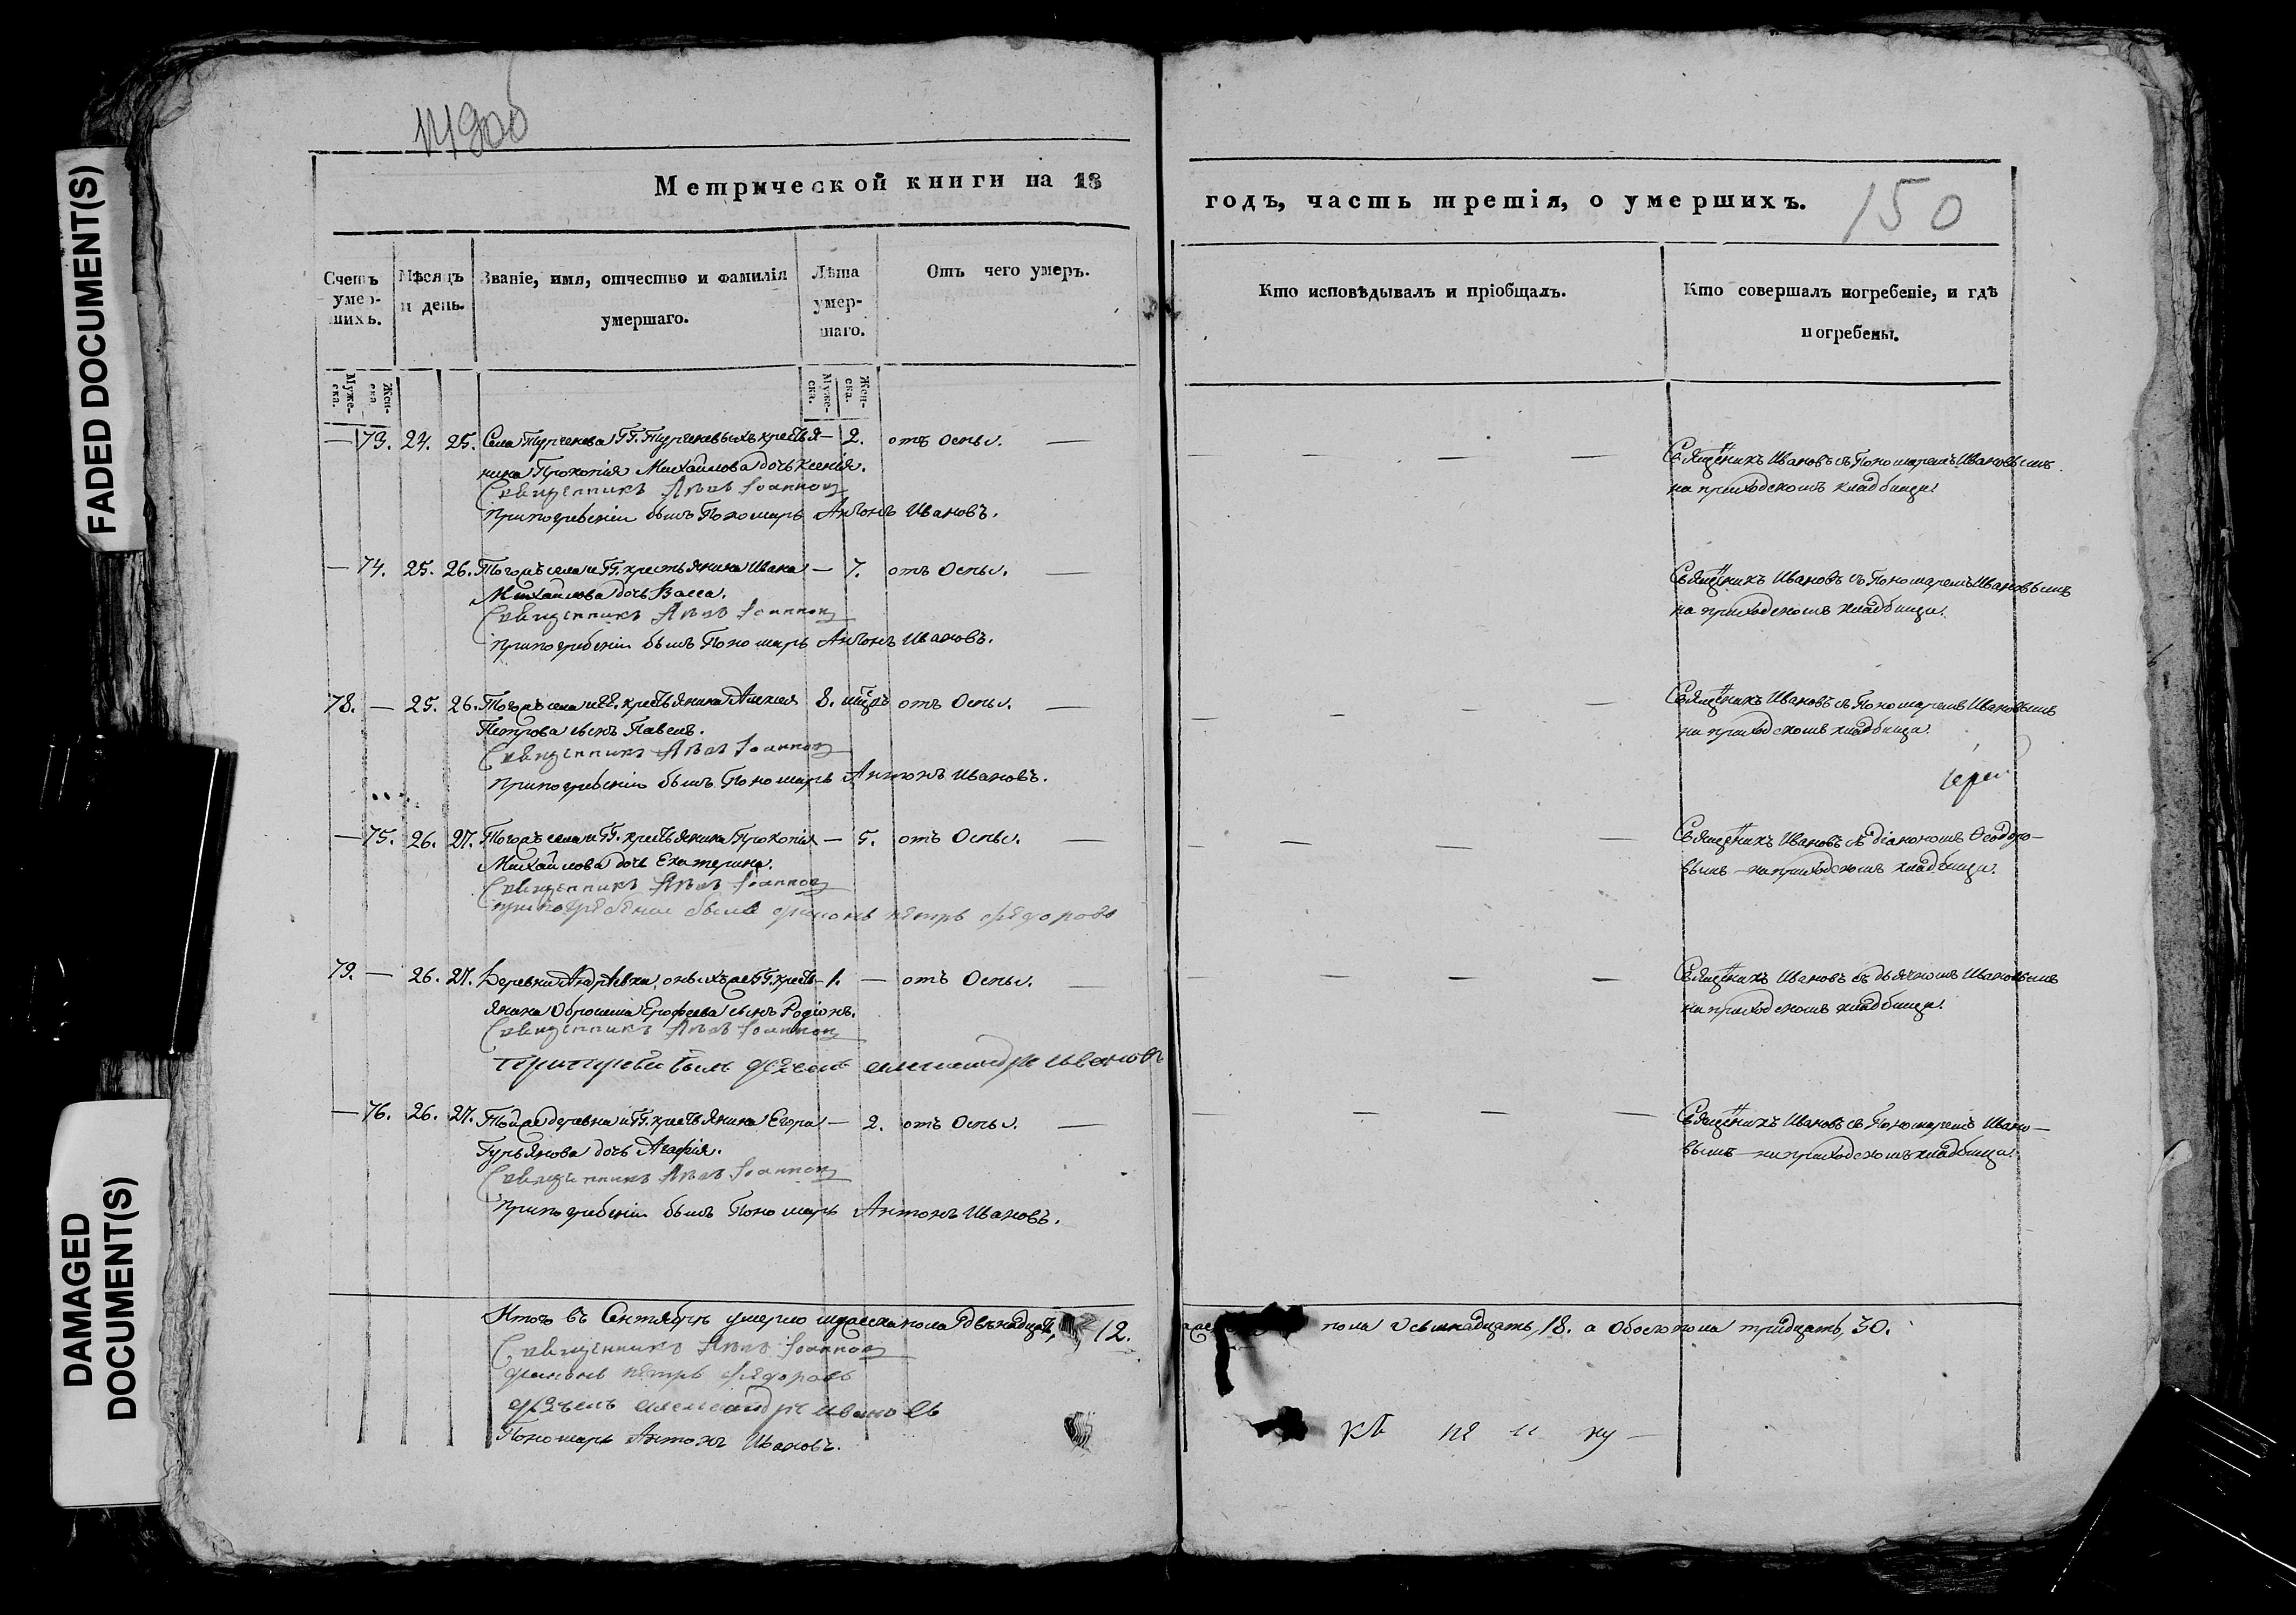 FADED DOCUMENT(S)
DAMAGED
DOCUMENT(S)
Метрической книги на 18
годъ, часть третія, о умершихъ.
150
Счетъ
умер-
шихъ.
Муже-
ска.
Жен-
ска.
Мѣсяцъ
и день.
Званіе, имя, отчество и фамилія
умершаго.
Лѣта
умер-
шаго.
Муже-
ска.
Жен-
ска.
Отъ чего умеръ.
Кто исповѣдывалъ и пріобщалъ.
Кто совершалъ погребеніе, и гдѣ
погребены.
— 73. 24. 25. Села Тургенева ГГ. Тургеневыхъ кресть я — 2. отъ Оспы. —
нина Прокопія Михайлова дочь Ксенія.
Священникъ Іоанновъ
При погребеніи былъ Пономарь Антонъ Ивановъ.
Священникъ Ивановъ съ Пономаремъ Ивановымъ
на приходскомъ кладбищѣ.
— 74. 25. 26. Тогожъ села и ГГ. крестьянина Ивана — 7. отъ Оспы. —
Михайлова дочь Васса.
Священникъ Іоанновъ
При погребеніи былъ Пономарь Антонъ Ивановъ.
Священникъ Ивановъ съ Пономаремъ Ивановымъ
на приходскомъ кладбищѣ.
78. — 25. 26. Тогожъ села и ГГ. крестьянина Алексея 8. отъ Оспы. —
Петрова сынъ Павелъ.
Священникъ Іоанновъ
При погребеніи былъ Пономарь Антонъ Ивановъ.
Священникъ Ивановъ съ Пономаремъ Ивановымъ
на приходскомъ кладбищѣ.
— 75. 26. 27. Тогожъ села и ГГ. крестьянина Прокопія — 5. отъ Оспы. —
Михайлова дочь Екатерина.
Священникъ Іоанновъ
при погребении былъ диаконъ петръ федоровъ
Священникъ Ивановъ съ діакономъ Ѳеодоро-
вымъ — на приходскомъ кладбищѣ.
79. — 26. 27. Деревни Андреевки, оныхъ же ГГ. кресть- 1. — отъ Оспы. —
янина Ерофеева сынъ Родіонъ.
Священникъ Іоанновъ
былъ александръ ивановъ
Священникъ Ивановъ съ дьячкомъ Ивановымъ
на приходскомъ кладбищѣ.
— 76. 26. 27. Тойже деревни и ГГ. крестьянина Егора — 2. отъ Оспы. —
Гурьянова дочь Агафія.
Священникъ Іоанновъ
При погребеніи былъ Пономарь Антонъ Ивановъ.
Священникъ Ивановъ съ Пономаремъ Ивано-
вымъ — на приходскомъ кладбищѣ.
Итого въ Сентябрѣ умерло мужеска пола двѣнадцать, 12.
пола осьмнадцать, 18. а обоего пола тридцать, 30.
Священникъ Іоанновъ
диаконъ петръ федоровъ
александръ ивановъ
Пономарь Антонъ Ивановъ.